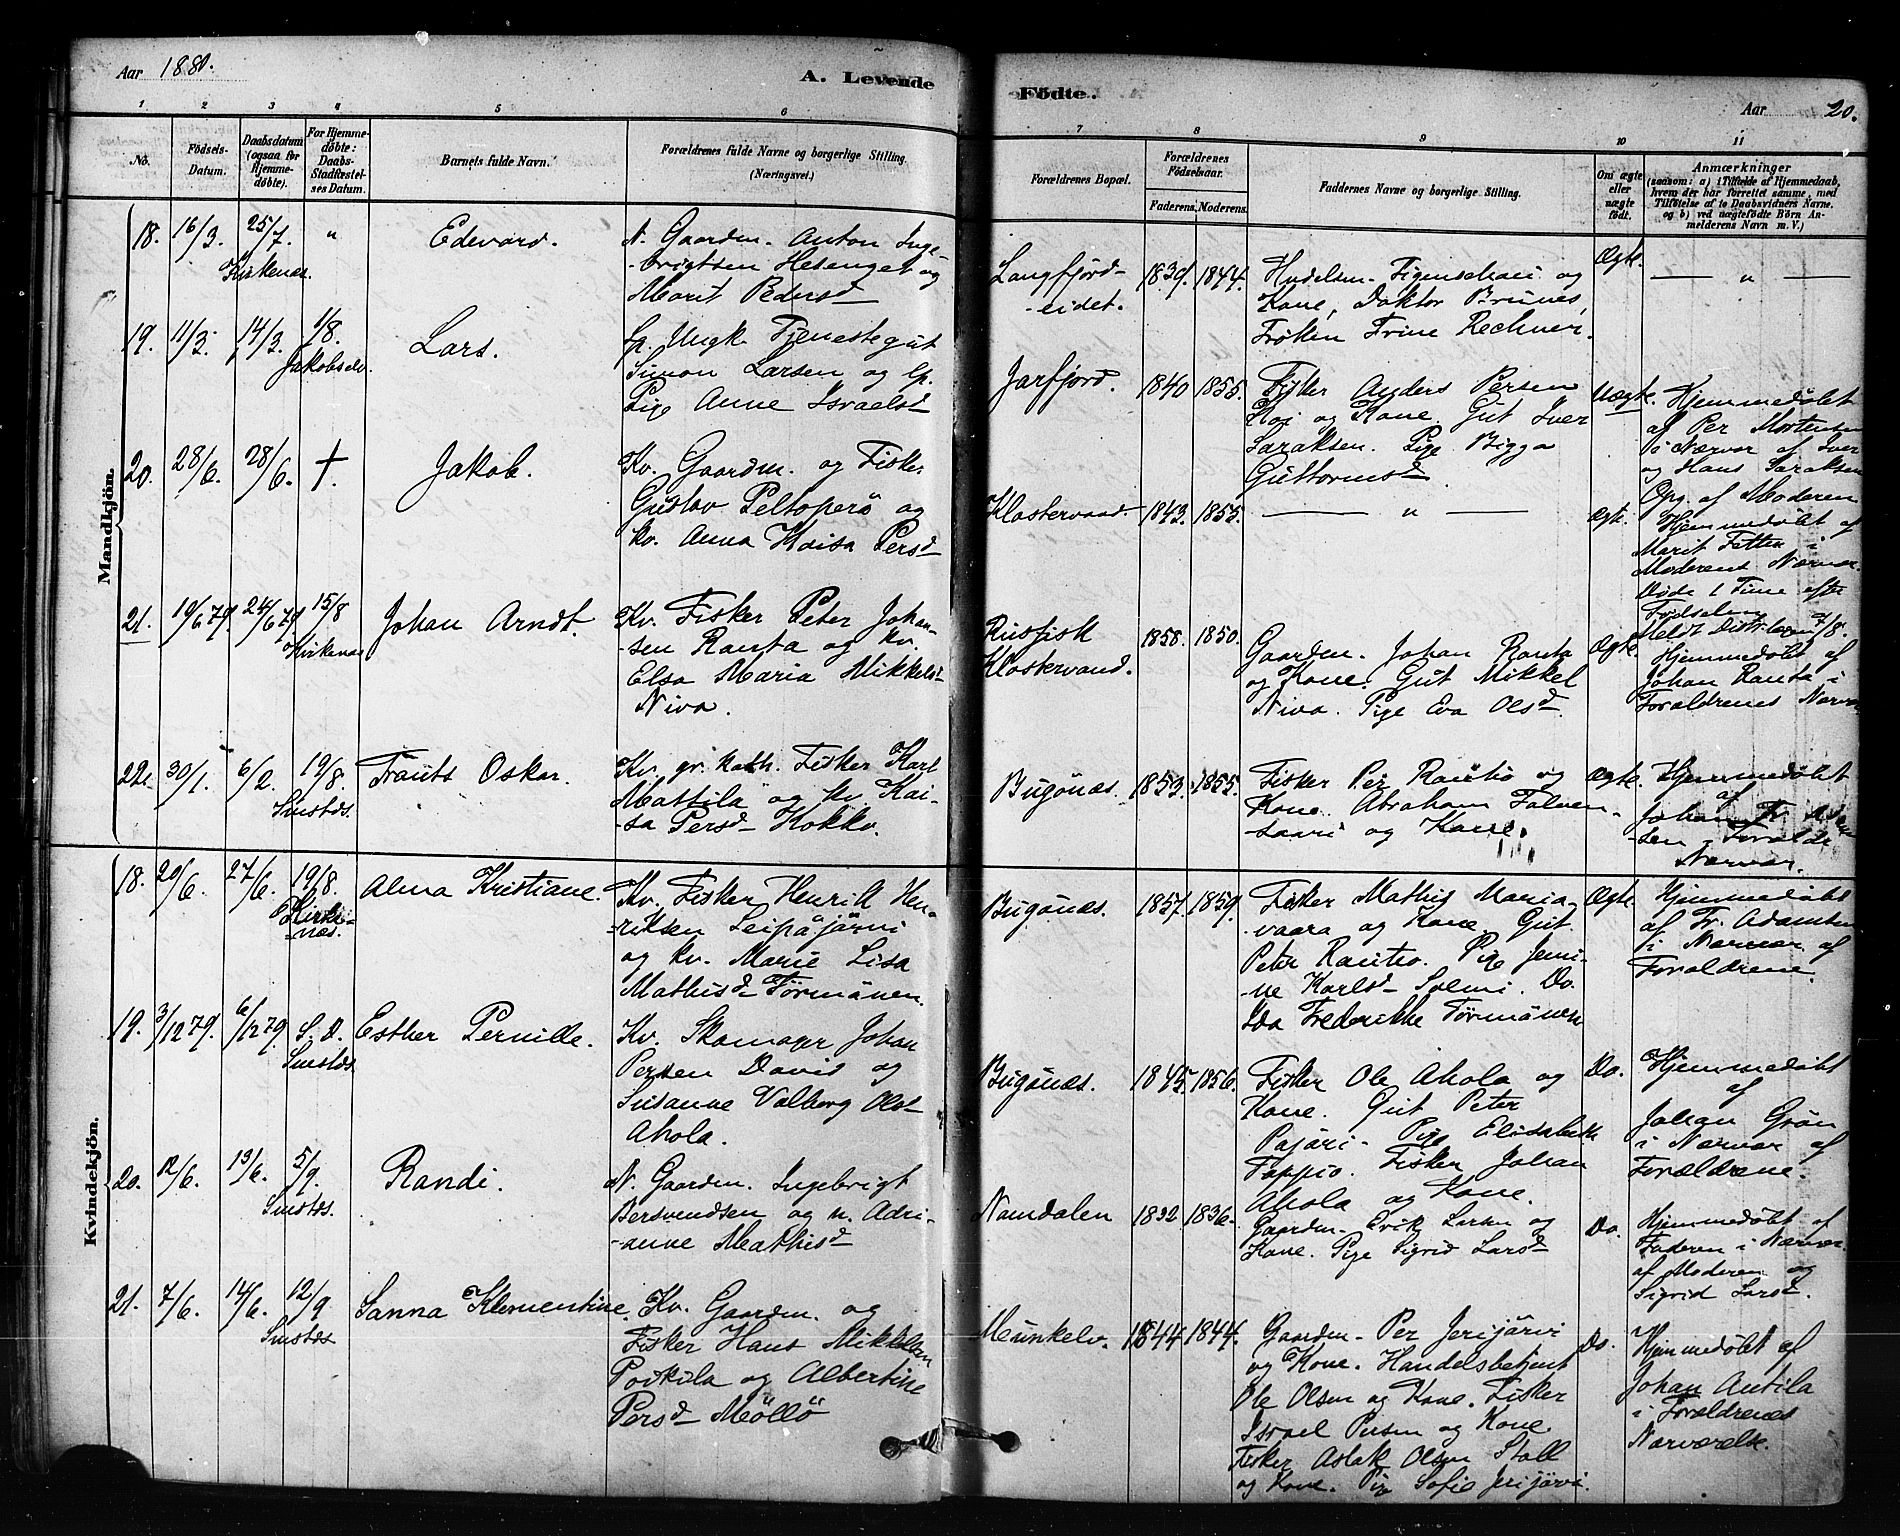 Aar 1880.
A. Levende
Födte.
Aar
20.
1 2 3 4 5 6
7 8 9 10 11
No.
Födsels-
Datum.
Daabsdatum
(ogsaa for
Hjemme-
döbte).
For Hjemme-
döbte:
Daabs-
Stadfæstel-
ses Datum.
Barnets fulde Navn.
Forældrenes fulde Navne og borgerlige Stilling.
(Næringsvei.)
Forældrenes Bopæl.
Forældrenes
Födselsaar.
Faderens. Moderens.
Faddernes Navne og borgerlige Stilling.
Om ægte
eller
uægte
födt.
Anmærkninger
(saasom: a) i Tilfælde af Hjemmedaab,
hvem der har forrettet samme, med
Tilföielse af to Daabsvidners Navne.
og b) ved uægtefödte Börn An-
melderens Navn m. V.)
Mandkjön.
18. 16/3. 25/7. "
Kirkenæs.
Edevard.
N. Gaardm. Anton Inge-
-brigtsen Hesenget og
Marit Pedersd
Langfjord-
-eidet.
1839. 1844.
Figenschau og
Kone, Doktor Brunes,
Frøken Trine Rechner.
Ægte.
— " —
19. 11/3. 14/3. 1/8.
Jakobselv.
Lars.
lp. Ungk. Tjenestegut
Simon Larsen og lp.
Pige Anne Israelsd
Jarfjord.
1840 1855.
Fisker Anders Persen
og Kone. Gut Iver
Saraksen. Pige Bigga
Guttormsd.
Uægte.
Hjemmedøbt
af Per Mortensen
i Nærvær af Iver
og Hans Saraksen
Opg. af Moderen
20. 28/6. 28/6. †.
Jakob.
Kv. Gaardm. og Fisker
Gustav Peltoperö og
kv. Anna Kaisa Persd
Klostervand.
1843. 1855.
— " —
Ægte.
Hjemmedøbt af
Marit Fetten i
Moderens Nærvær
Døde 1 Time efter
Fødselen
Meldt 7/8.
21. 19/6 79. 24/6 79. 15/8
Kirkenæs
Johan Arndt.
Kv. Fisker Peter Johan-
-sen Ranta og kv.
Elsa Maria Mikkelsd
Niva.
Russisk
Klostervand.
1858. 1850.
Gaardm. Johan Ranta
og Kone. Gut Mikkel
Niva. Pige Eva Olsd.
Ægte.
Hjemmedøbt af
Johan Ranta i
Forældrenes Nærvær
22. 30/1. 6/2. 19/8.
Smstds.
Frants Oskar.
Kv. gr. kath. Fisker Karl
Mattila og kv. Kai-
-sa Persd Kokko.
Bugönæs.
1853. 1855.
Fisker Per Rautio og
Kone. Abraham Talven-
saari og Kone.
Ægte.
Hjemmedøbt
af
Johan Fr. Adam-
sen i Foræld
Nærvær.
Kvindekjön.
18. 20/6. 27/6. 19/8.
Kirke-
-næs.
Alma Kristiane.
Kv. Fisker Henrik Hen-
-riksen Seipäjärvi
og kv. Marie Lisa
Mathisd Törmänen.
Bugönæs.
1857. 1859.
Fisker Mathis Maria-
-vaara og Kone. Gut
Peter Rautio. Pige Jemi-
-ne Karlsd Salmi. Do.
Ida Frederikke Törmänen
Ægte.
Hjemmedøbt
af Fr. Adamsen
i Nærvær af
Forældrene.
19. 3/12 79. 6/12 79. S. D.
Smstds.
Esther Pernille.
Kv. Skomager Johan
Persen David og
Susanne Valborg Olsd
Ahola.
Bugönæs.
1845. 1856.
Fisker Ole Ahola og
Kone. Gut Peter
Pajari. Pige Elisabeth
Tappio. Fisker Johan
Ahola og Kone.
Do.
Hjemmedøbt
af
Johan Grön
i Nærvær af
Forældrene.
20. 12/6. 13/6. 5/9.
Smstds.
Randi.
N. Gaardm. Ingebrigt
Bersvendsen og n. Adri-
-anne Mathisd
Namdalen
1832 1836.
Gaardm. Erik Larsen og
Kone. Pige Sigrid Larsd
Do.
Hjemmedøbt af
Faderen i Nærvær
af Moderen og
Sigrid Larsd.
21. 7/6. 14/6. 12/9
Smstds
Sanna Klementine.
Kv. Gaardm. og
Fisker Hans Mikkelsen
Poikila og Albertine
Persd Möllö
Munkelv.
1844 1844.
Gaardm. Per Jerijärvi
og Kone. Handelsbetjent
Ole Olsen og Kone. Fisker
Israel Persen og Kone
Fisker Aslak Olsen Stall
og Kone. Pige Sofie Jerijärvi
Do.
Hjemmedøbt af
Johan Antila
i Forældrenes
Nærværelse.